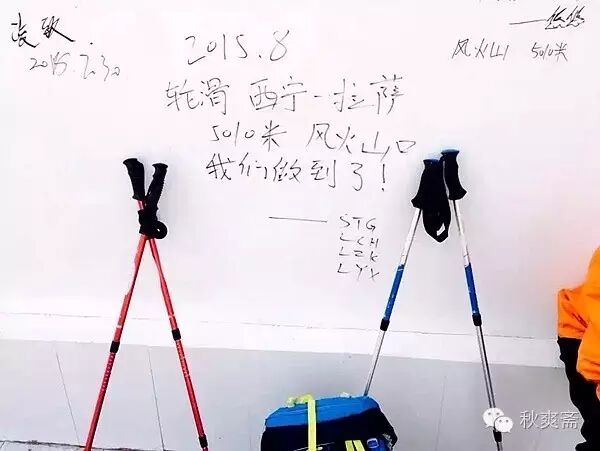 2015.7.30
——悠悠
风火山 5010米
2015.8
轮滑 西宁-拉萨
5010米 风火山口
我们做到了!
—— STG
LCH
LZK
LYX
秋爽斋